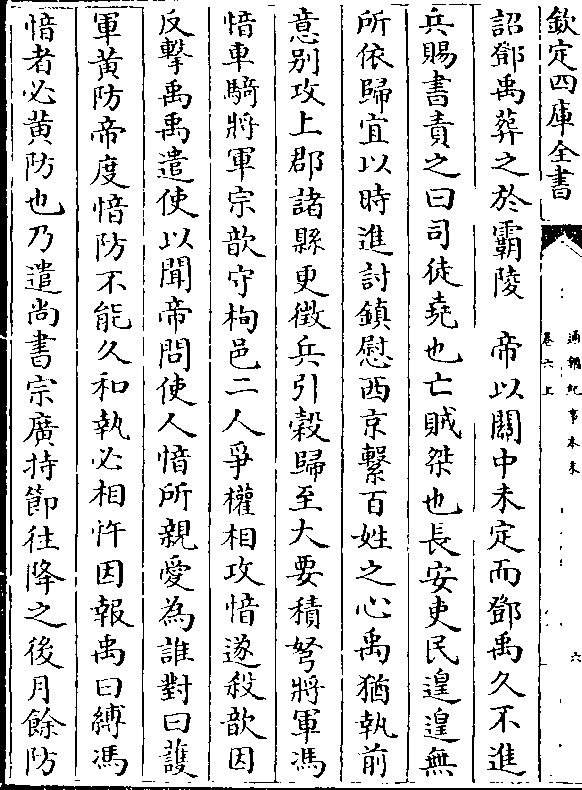 欽定四庫全書
通鑑紀事本末
卷六上
六
詔鄧禹葬之於霸陵　帝以關中未定而鄧禹久不進
兵賜書責之曰司徒堯也亡賊桀也長安吏民遑遑無
所依歸宜以時進討鎮慰西京繫百姓之心禹猶執前
意别攻上郡諸縣更徵兵引穀歸至大要積弩將軍馮
愔車騎將軍宗歆守栒邑二人爭權相攻愔遂殺歆因
反擊禹禹遣使以聞帝問使人愔所親愛為誰對曰護
軍黄防帝度愔防不能久和執必相忤因報禹曰縛馮
愔者必黄防也乃遣尚書宗廣持節往降之後月餘防